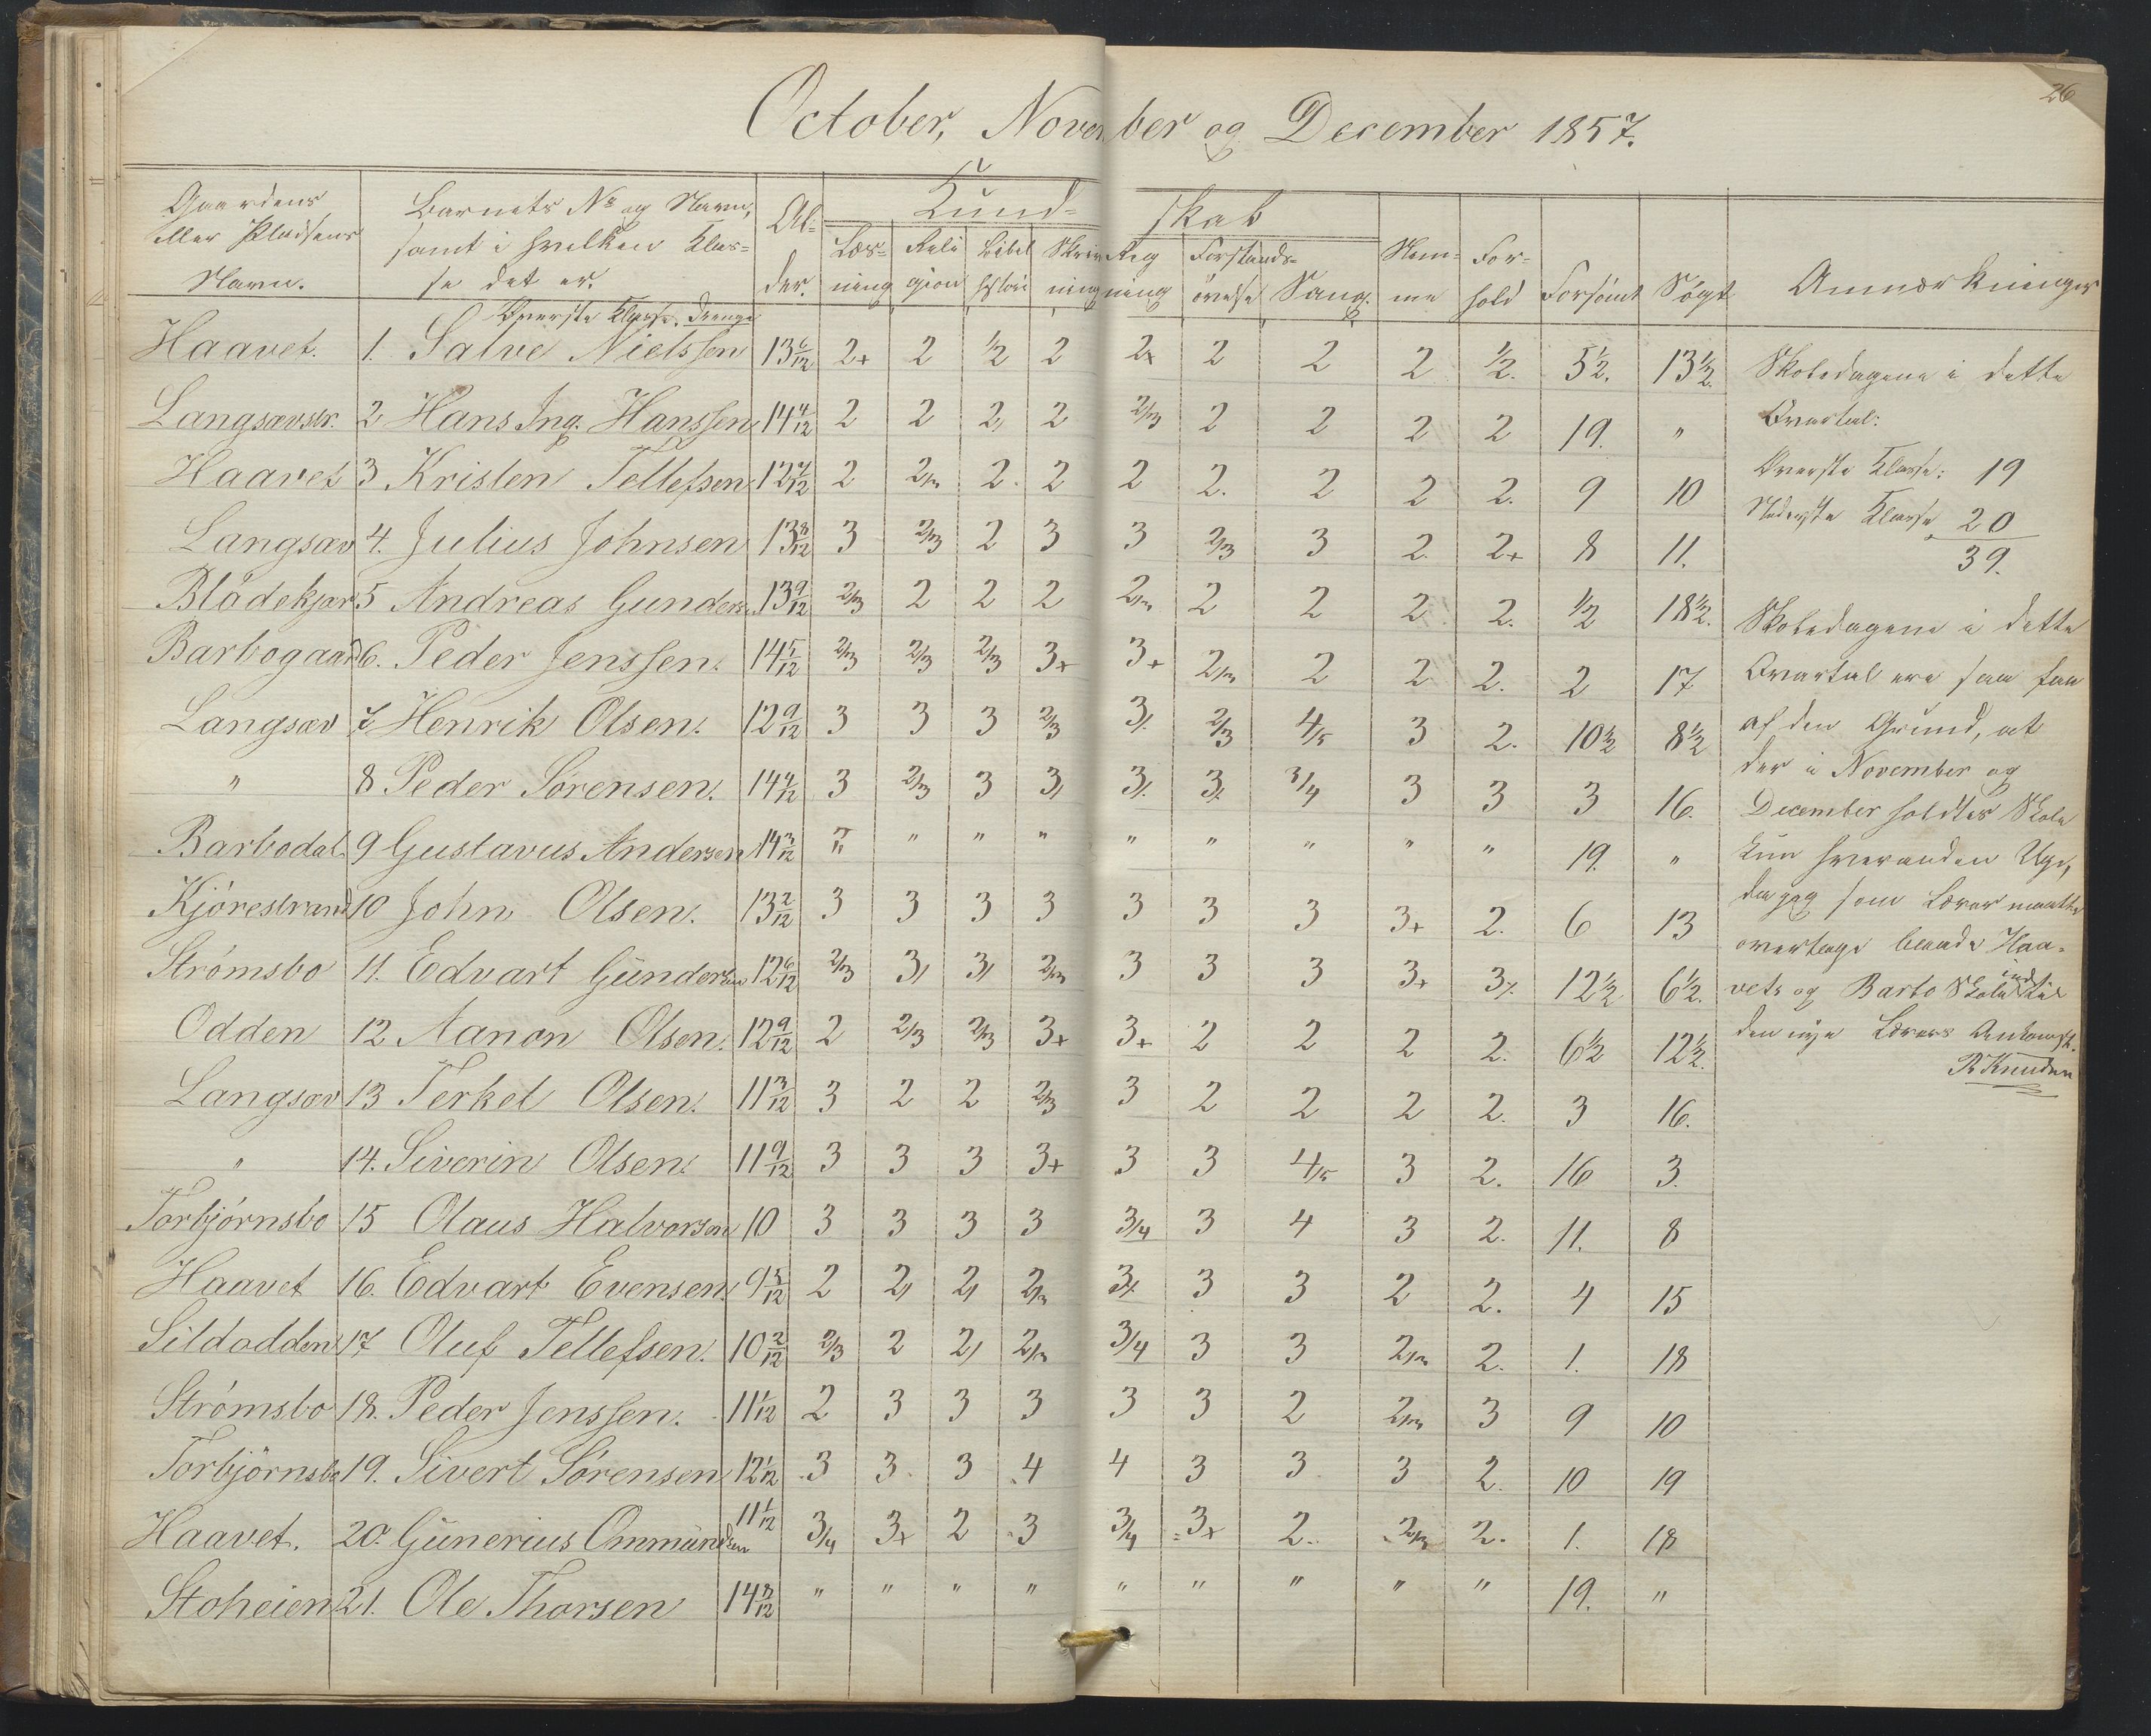 26
October, November og December 1857.
Gaardens eller Pladsens Navn.
Barnets No og Navn, samt i hvilken Klas= se det er.
Al= der.
Kund= skab
Læs= ning
Reli gion
Bibel histori
Skriv ning
Reg ning
Forstands= øvelse
Sang.
Nem= me
For= hold
Forsømt
Søgt
Anmærkninger
Øverste Klasse. Drenge
Haavet. 1. Salve Nielssen 13 6/12 2+ 2 1/2 2 2+ 2 2 2 1/2. 5 1/2. 13 1/2.
Langsævstr. 2 Hans Ing. Hanssen 14 4/12 2 2 2/ 2 2/3 2 2 2 2 19. "
Haavet 3 Kristen Tellefsen 12 7/12 2 2/3 2. 2 2 2. 2 2 2. 9 10
Langsæv 4. Julius Johnsen 13 8/12 3 2/3 2 3 3 2/3 3 2. 2+ 8 11.
Blødekjær 5 Andreas Gunders. 13 9/12 2/3 2 2 2 2/3 2 2 2 2. 1/2 18 1/2.
Barbogaard 6. Peder Jenssen. 14 5/12 2/3 2/3 2/3 3+ 3+ 2/3 2 2 2. 2 17
Langsæv 7 Henrik Olsen. 12 9/12 3 3 3 2/3 3/. 2/3 4/5 3 2. 10 1/2 8 1/2
" 8 Peder Sørensen. 14 4/12 3 2/3 3 3/ 3/. 3/. 3/4 3 3 3 16.
Barbodal 9 Gustavus Andersen 14 3/12 " " " " " " " " " 19. "
Kjørestrand 10 John Olsen. 13 2/12 3 3 3 3 3 3 3 3+ 2. 6 13
Strømsbo 11. Edvart Gundersen 12 6/12 2/3 3/ 3/ 2/3 3 3 3 3+ 3/. 12 1/2 6 1/2.
Odden 12 Aanon Olsen. 12 9/12 2 2/3 2/3 3+ 3+ 2 2 2 2. 6 1/2 12 1/2.
Langsæv 13 Terkel Olsen. 11 3/12 3 2 2 2/3 3 2 2 2 2. 3 16.
" 14. Siverin Olsen. 11 9/12 3 3 3 3+ 3 3 4/5 3 2. 16 3.
Torbjørnsbo 15 Olaus Halvorsen 10 3 3 3 3 3/4 3 4 3 2. 11. 8
Haavet 16. Edvart Evensen. 9 5/12 2 2/ 2/ 2/3 3/. 3 3 2 2. 4 15
Sildodden 17 Oluf Tellefsen. 10 2/12 2/3 2 2/ 2/3 3/4 3 3 2/3 2. 1. 18
Strømsbo 18. Peder Jenssen. 11 1/12 2 3 3 3 3 3 2 2/3 3 9 10
Torbjørnsbo 19. Sivert Sørensen 12 1/12 3 3. 3 4 4 3 3 3 2. 10 19
Haavet. 20. Gunerius Ommundsen 11 1/12 3/4 3+ 2 3 3/4 3+ 2. 2/3 2. 1. 18
Stoheien 21. Ole Thorsen 14 8/12 " " " " " " " " " 19. "
Skoledagene i dette
Qvartal:
Øverste Klasse: 19
Nederste Klasse 20
39.
Skoledagene i dette
Qvartal ere saa faa
af den Grund, at
der i November og
December holdtes Skole
kun hveranden Uge,
da jeg som Lærer maatte
overtage baade Haa=
vets og Barbo Skole indtil
den nye Lærers Ankomst.
R Knudsen